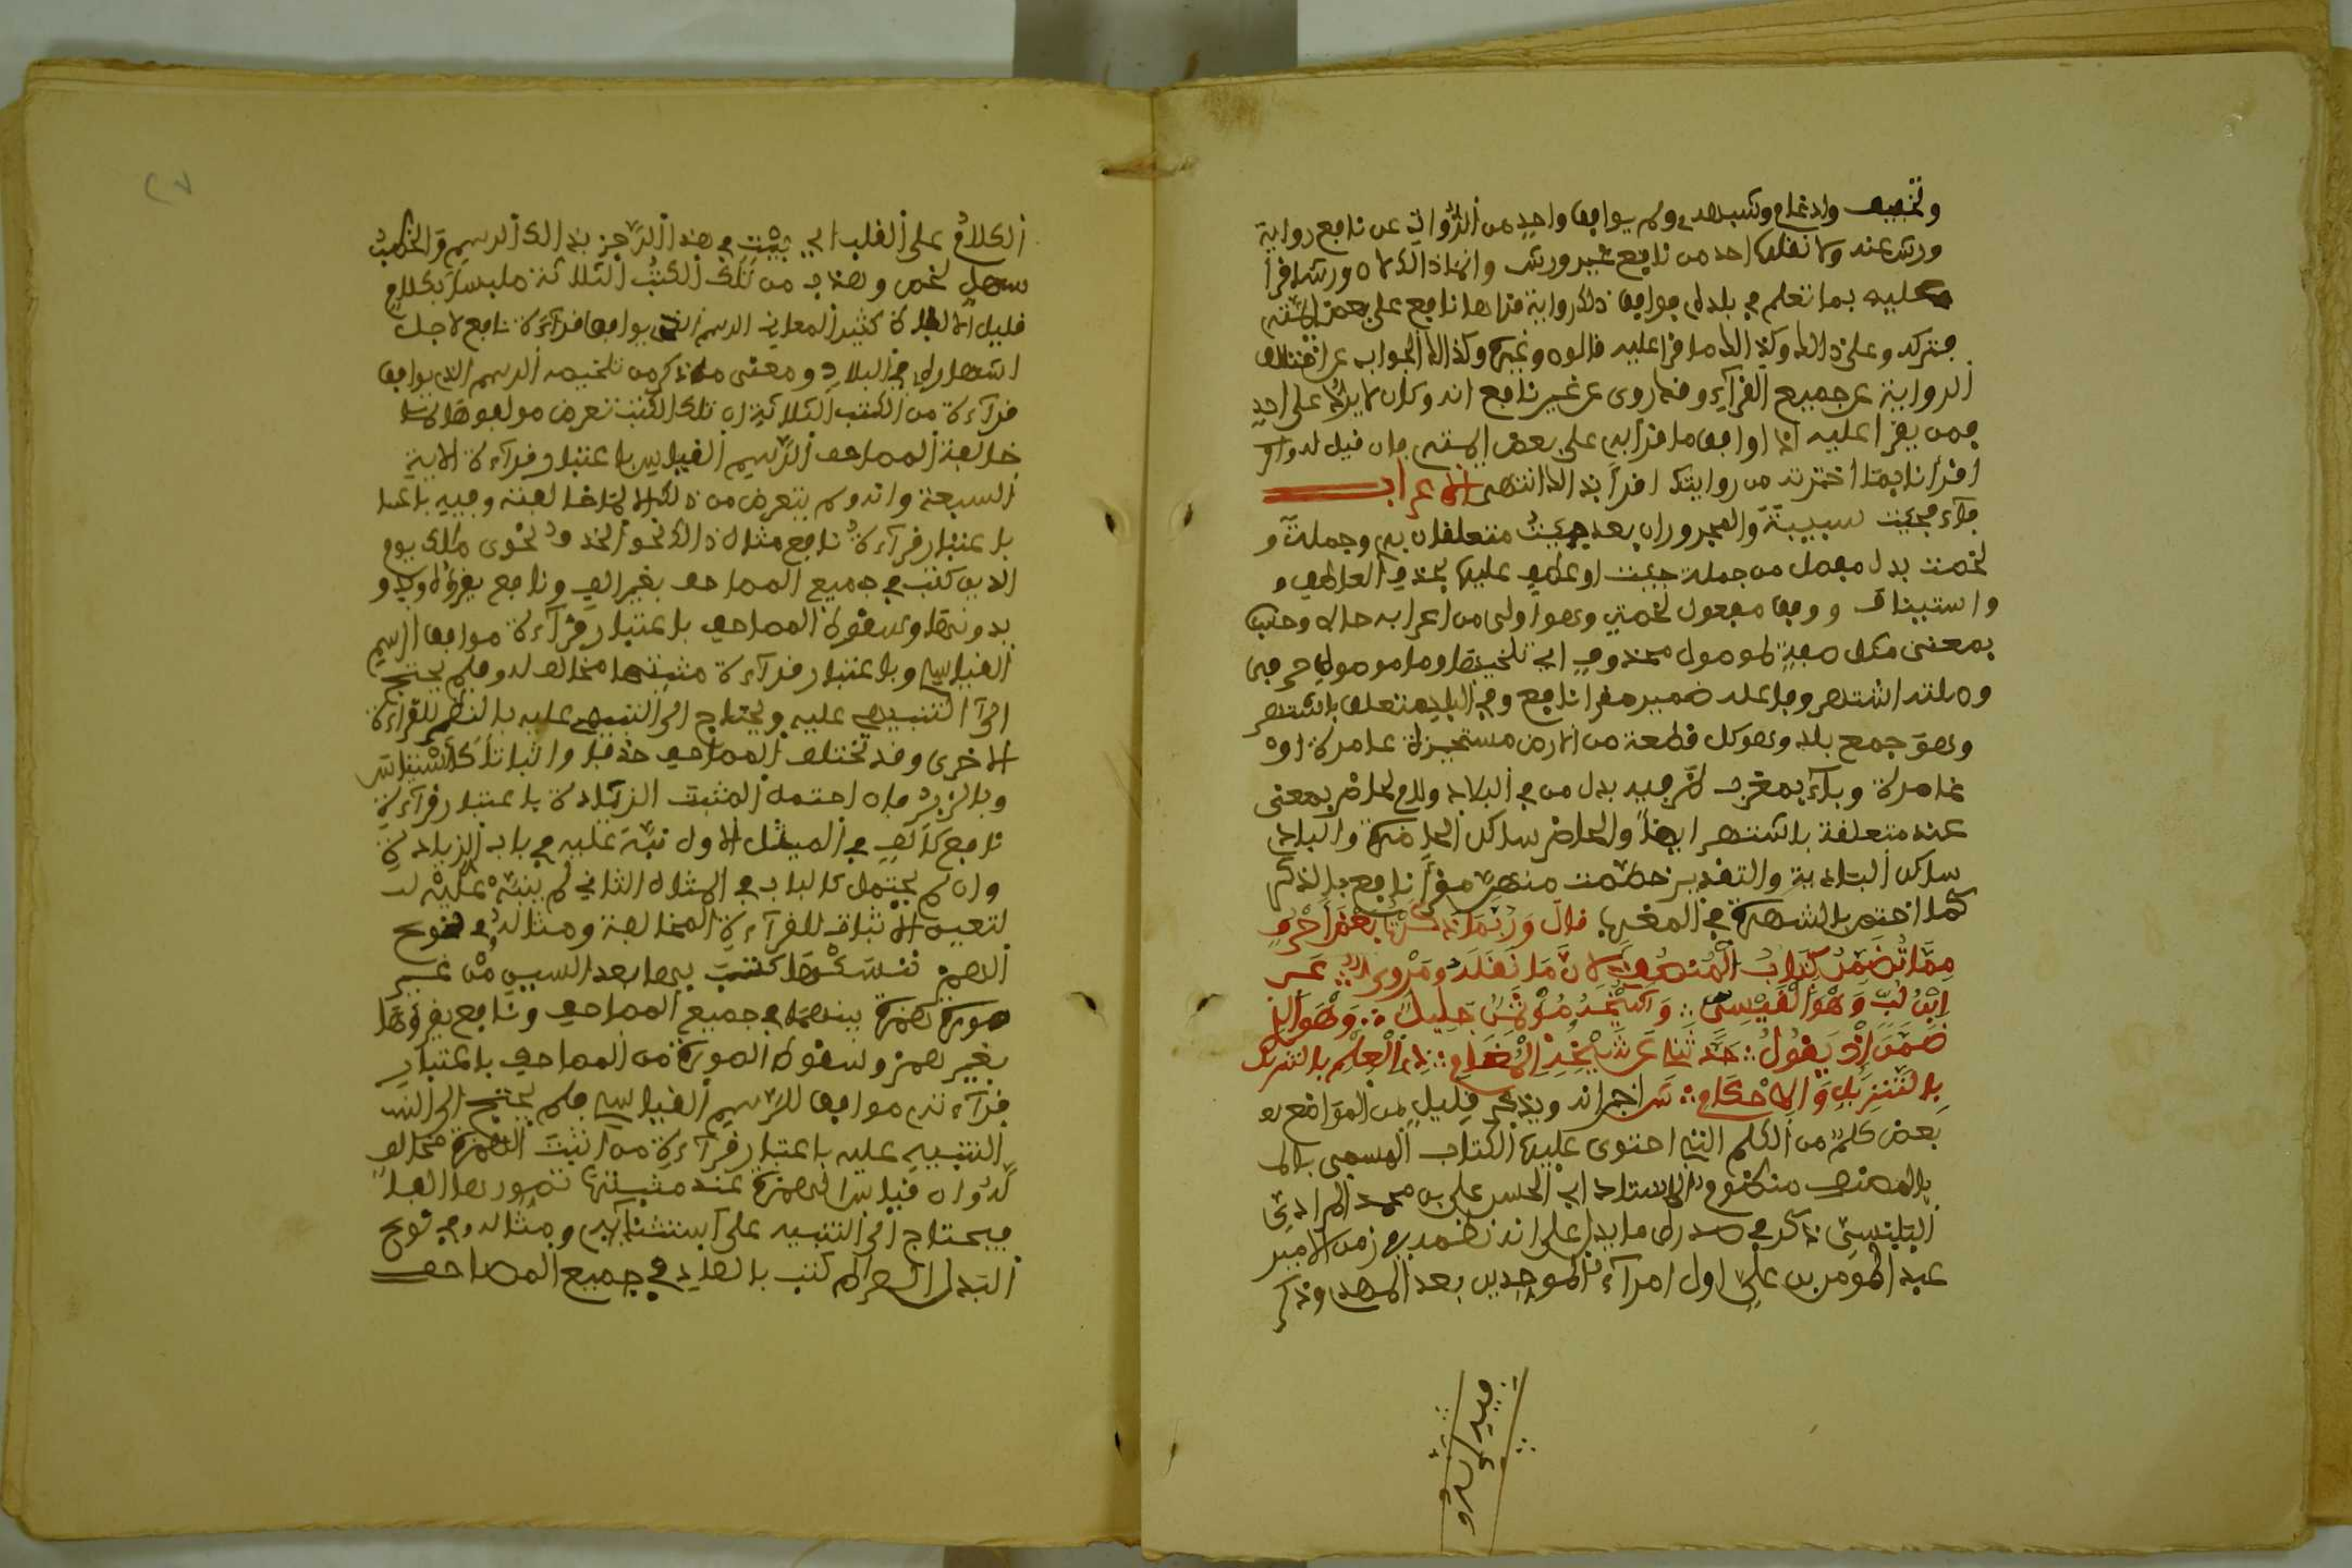 وتخفيف وادغام وشبهه ولم يوافق واحد من الرواة عن نافع رواية
ورش عنه ولا نقلها احد من نافع غير ورش وانما ذالك لان ورشا قرأ
عليه بما تعلم في بلده فوافق ذلك رواية قراها نافع على بعض ايمته
فتركه وعلى ذالك وكذالك ما قرا عليه قالون وغيره وكذالك الجواب عن اختلاف
الرواية عن جميع القراء وقد روى عن غير نافع انه كان لا يرد على احد
ممن يقرا عليه اذا وافق ما قرا به على بعض ايمته فان قيل له
اقرأنا بما اخترته من روايتك اقرأ بذالك انتهى الاعراب
فآء فجئت سببية والمجروران بعد جئت متعلقان به وجملة
لخصت بدل مفصل من جملة جئت او عطف عليها بحذف العاطف
واستيناف ووفق مفعول لخصت وهو اولى من اعرابه حالا وحيث
بمعنى مكان صفة لموصول محذوف اي تلخيصا وما موصول حرفي
وصلته اشتهر وفاعله ضمير مقرا نافع وفي البلاد متعلق باشتهر
وهو جمع بلد وهو كل قطعة من الارض مستحيزة عامرة او
غامرة وبآء بمغرب ظرفية بدل من في البلاد ولام لحاضر بمعنى
عند متعلقة باشتهر ايضا والحاضر ساكن الحاضرة والبادي
ساكن البادية والتقدير خصصت منهن مقرأ نافع بالذكر
كما اختص بالشهرة في المغرب قال وَرُبَّمَا ذَكَرْتُ بَعْضَ أَحْرُفِ
مِمَّا تَضَمَّنَ كِتَابُ الْمُنْصِفِ لأَنَّ مَا نَقَلَهُ مَرْوِيُّ عَنِ
ابْنِ لُبٍّ وَهْوَ الْقَيْسِيُّ وَشَيْخُهُ مُؤْتَمَنٌ جَلِيلُ وَهْوَ الذي
ضَمَّنَ إذْ يَقُولُ حَدَّثَنِي عَنْ شَيْخِهِ الْمَغَامِي ذِي الْعِلْمِ بالتنزيل
بِالتَّنْزِيلِ وَالأَحْكَامِ ش اخبر انه ويذكر في قليل من المواضع
بعض كلم من الكلم التي احتوى عليها الكتاب المسمى
بالمنصف منظوم الاستاذ ابي الحسن علي بن محمد المرادي
البلنسي ذكر في صدره ما يدل على انه نظمه في زمن الامير
عبد المومن بن علي اول امرآء الموحدين بعد المهدي وذكر
فيه انه و
الكلام على القلب اي جئت في هذا الرجز بذالك الرسم
سهل لخص وهذب من تلك الكتب الثلاثة ملبسا بكلام
قليل الالفاظ كثير المعاني الرسم الذي يوافق قرآءة نافع لاجل
اشتهاره في البلاد ومعنى ما ذكر من تلخيصه الرسم الذي يوافق
قرآءة من الكتب الثلاثة ان تلك الكتب تعرض مولفوها
خالفة المصاحف الرسم القياسي باعتبار قرآءة الايمة
السبعة وانه لم يتعرض من ذلك الا لما خالفته وفيه باعتبا
باعتبار قرآءة نافع مثال ذالك نحو الحذف نحو ملك يوم
الدين كتب في جميع المصاحف بغير الف ونافع يقرؤه
بدونها وسقوط المصاحف باعتبار قرآءة موافق الرسم
القياسي وباعتبار قرآءة مثبتها مخالف له فلم يحتج
الى التنبيه عليه ويحتاج الى التنبيه عليه بالنظر للقرآءة
الاخرى وقد تختلف المصاحف حذفا واثباتا
وبالزبر فان احتمل المثبت الزيادة باعتبار قرآءة
نافع كالالف في المثال الاول نبه عليه في باب الزيادة
وان لم يحتمل كالباء في المثال الثاني لم ينبه عليه
لتعين الاثبات للقرآءة المخالفة ومثاله في نوع
الهمز ننسئها كتبت بها بعد السين من غير
صورة همزة بينهما في جميع المصاحف ونافع يقرؤها
بغير همز وسقوط الصورة من المصاحف باعتبار
قرآءته موافق للرسم القياسي فلم يحتج الى
التنبيه عليه باعتبار قرآءة من اثبت الهمزة مخالف
له وان قياس الهمزة عند مثبتها تصورها الفا
فيحتاج الى التنبيه على استثنائه ومثاله في نوع
البدل الصراط كتب بالصاد في جميع المصاحف